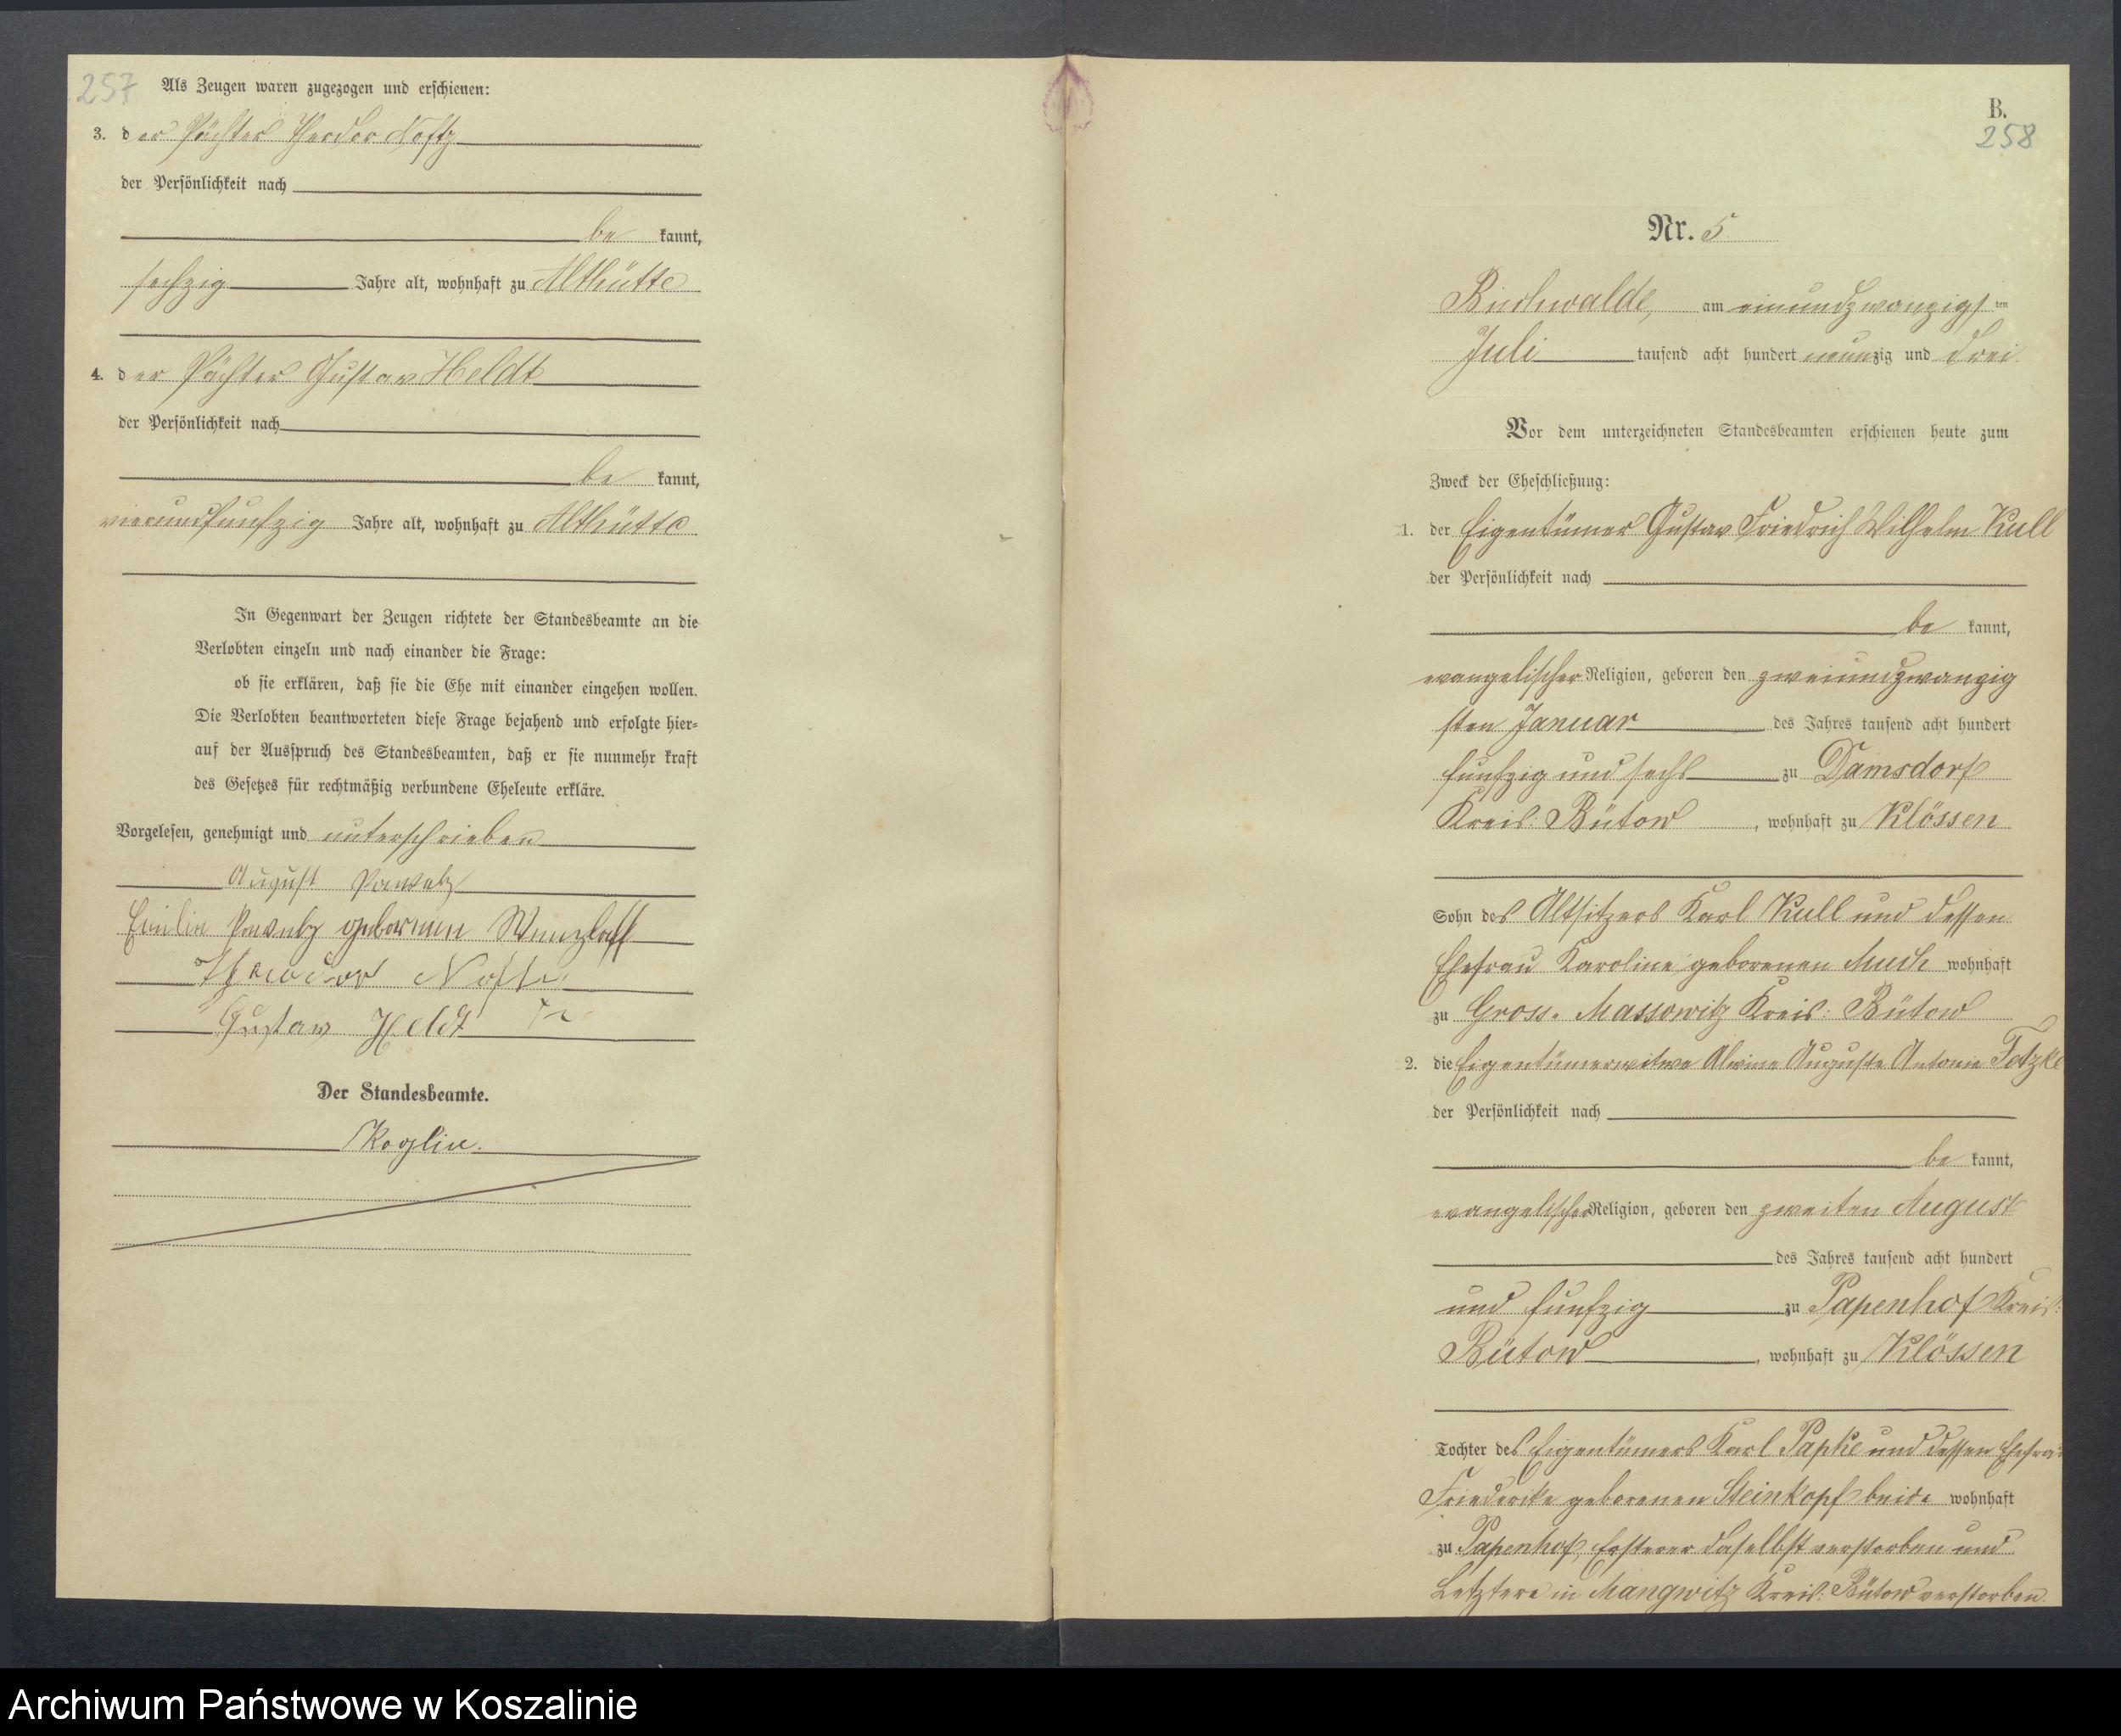 257
Als Zeugen waren zugezogen und erschienen:
3. der Pächter Theodor Noftz
der Persönlichkeit nach
be kannt,
sechzig Jahre alt, wohnhaft zu Althütte
4. der Pächter Gustav Heldt
der Persönlichkeit nach
be kannt,
vierundfünfzig Jahre alt, wohnhaft zu Althütte
In Gegenwart der Zeugen richtete der Standesbeamte an die
Verlobten einzeln und nach einander die Frage:
ob sie erklären, daß sie die Ehe mit einander eingehen wollen.
Die Verlobten beantworteten diese Frage bejahend und erfolgte hier-
auf der Ausspruch des Standesbeamten, daß er sie nunmehr kraft
des Gesetzes für rechtmäßig verbundene Eheleute erkläre.
Vorgelesen, genehmigt und unterschrieben
August Pawelz
Emilie Pawelz geborenen Wenzlaff
Theodor
Gustav Heldt
Der Standesbeamte.
Koglin.
B.
258
Nr. 5
am einundzwanzigsten
Juli tausend acht hundert neunzig und drei
Vor dem unterzeichneten Standesbeamten erschienen heute zum
Zweck der Eheschließung:
1. der Eigentümer Gustav Friedrich Wilhelm Kull
der Persönlichkeit nach
be kannt,
evangelischer Religion, geboren den zweiundzwanzig
sten Januar des Jahres tausend acht hundert
fünfzig und sechs zu Damsdorf
Kreis: Bütow, wohnhaft zu Klössen
Sohn des Altsitzers Karl Kull und dessen
Ehefrau Karoline geborenen Much wohnhaft
zu Gross-Massowitz Kreis: Bütow
2. die Eigentümerwitwe Alwine Auguste Antonie Tetzke
der Persönlichkeit nach
be kannt,
evangelischer Religion, geboren den zweiten August
des Jahres tausend acht hundert
und fünfzig zu Papenhof Kreis:
Bütow, wohnhaft zu Klössen
Tochter des Eigentümers Karl Papke und dessen Ehefrau
Friedericke geborenen Steinkopf beide wohnhaft
zu Papenhof, Ersterer daselbst verstorben und
Letztere in Mangwitz Kreis: Bütow verstorben.
Archiwum Państwowe w Koszalinie